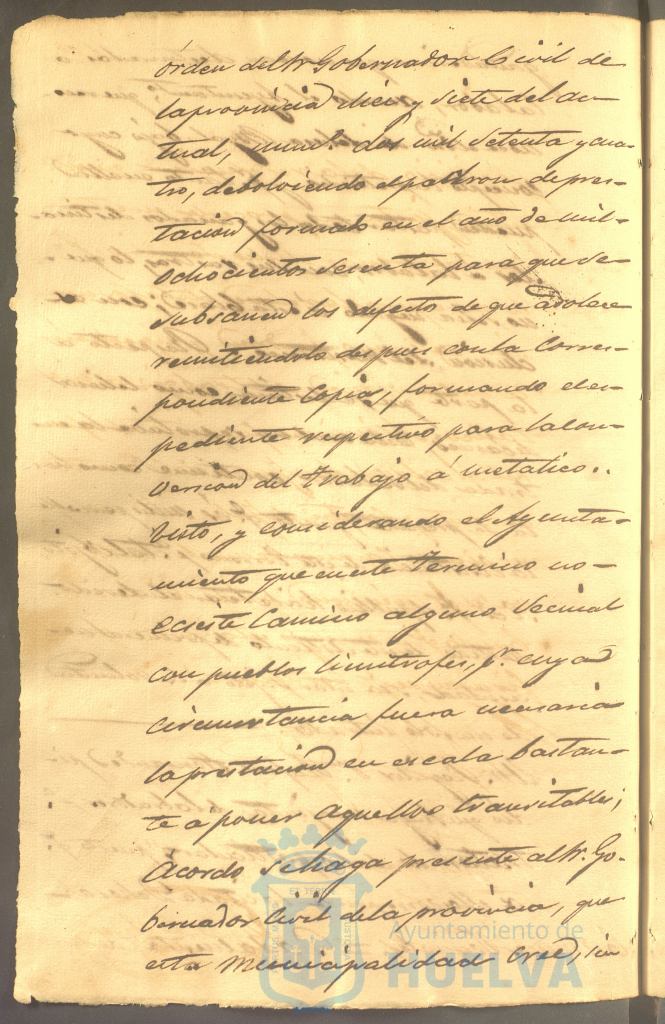 órden del Sr Gobernador Civil de
la provincia diez y siete del ac-
tual, numo. dos mil setenta y cua-
tro, debolviendo el padron de pres-
tacion formado en el año de mil-
ochocientos sesenta para que se-
subsanen los defecto de que adolece
remitiendolo despues con la corres-
pondiente Copia, formando el es-
pediente respectivo para la con-
version del trabajo á metalico..
Visto, y considerando el Ayunta-
miento que en este termino no-
ecsiste Camino alguno Vecinal
con pueblos limitrofes, pr. cuya
circunstancia fuera necesaria
la prestacion en escala bastan-
te a poner aquellos transitables;
Acordo se haga presente al Sr. Go-
bernador Civil de la provincia, que
esta Municipalidad cree, sin
Ayuntamiento de
HUELVA